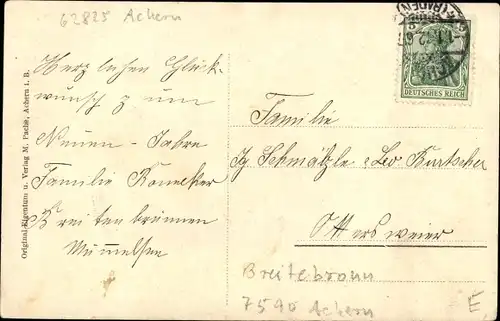 62825 Achern
Herzlichen Glück-
wunsch zum
Neuen-Jahre
Familie
Breitenbrunnen
Mummelsee
Original-Eigentum u. Verlag M. Pache, Achern i. B.
DEUTSCHES REICH
Familie
Jg. Schmälzle Leo Kurtscher
Ottersweier
Breitebronn
7590 Achern
E